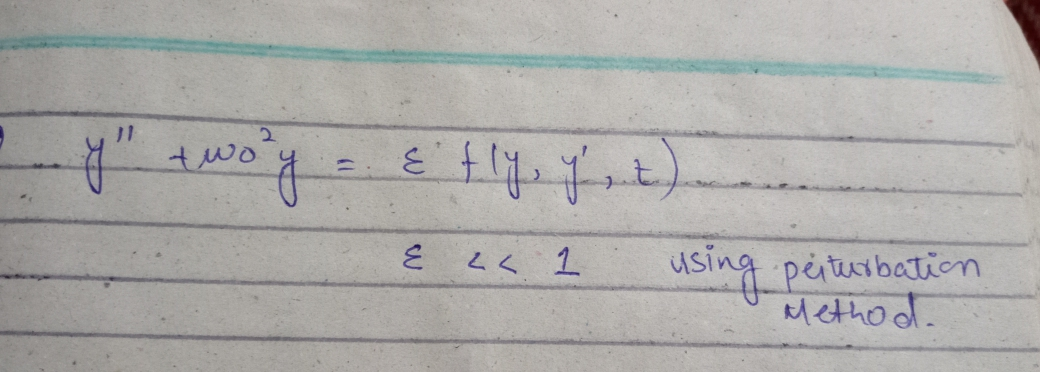 y'' + ω0²y = ε f(y, y', t)
ε << 1 using perturbation
Method.